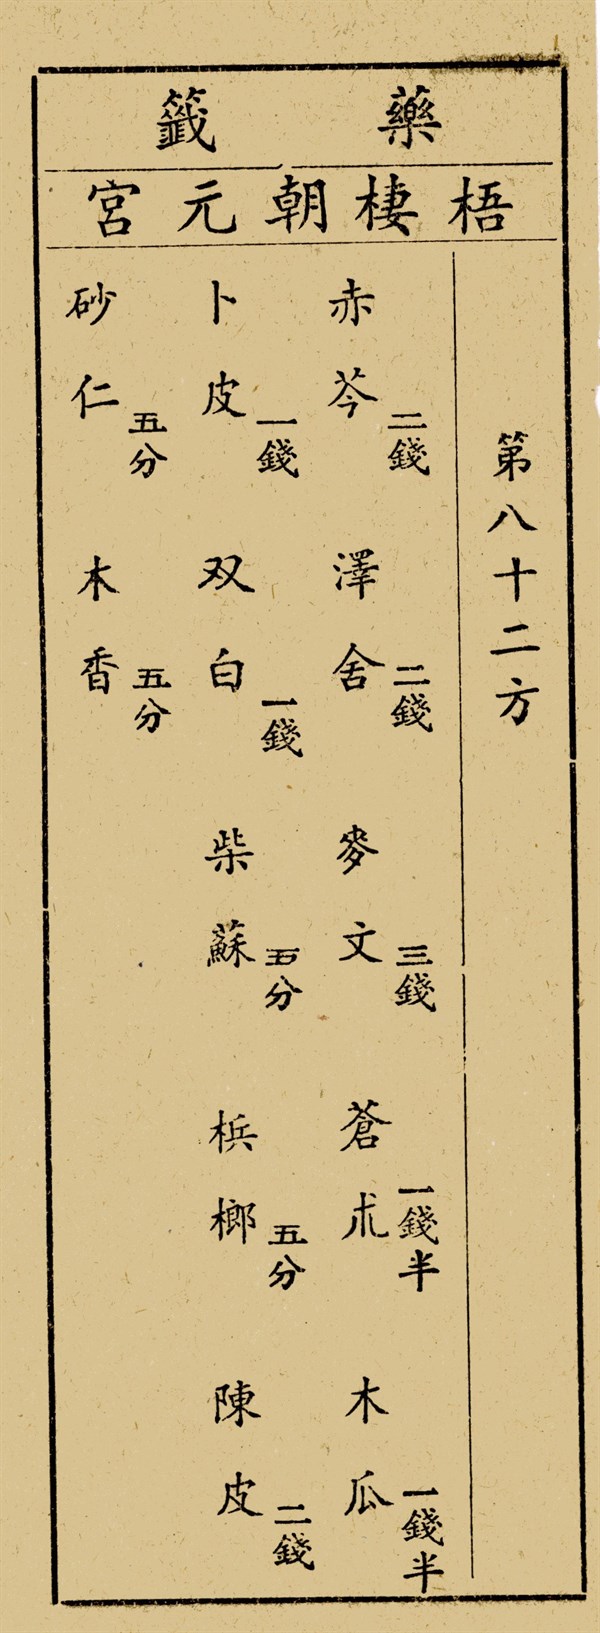 藥籤
梧棲朝元宮
第八十二方
赤芩二錢 澤舍二錢 麥文三錢 蒼朮一錢半 木瓜一錢半
卜皮一錢 双白一錢 柴蘇五分 梹榔五分 陳皮二錢
砂仁五分 木香五分